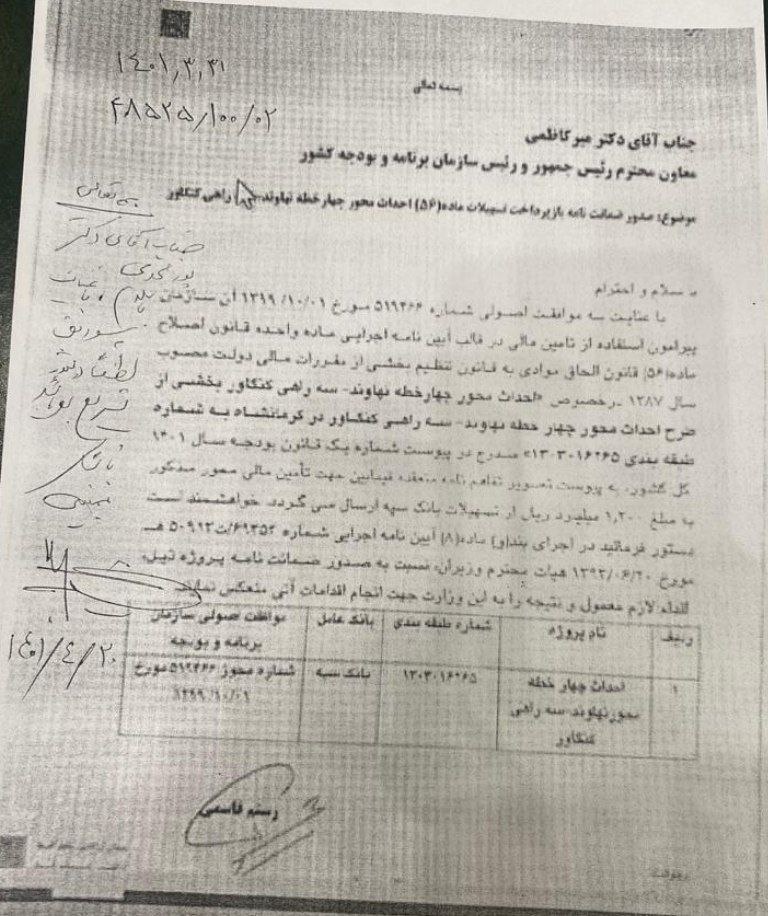 ۱۴۰۱,۳,۳۱
۴۸۵۲۵/۱۰۰/۰۲
بسمه تعالی
جناب آقای دکتر میرکاظمی
معاون محترم رئیس جمهور و رئیس سازمان برنامه و بودجه کشور
موضوع: صدور ضمانت نامه بازپرداخت تسهیلات ماده(۵۶) احداث محور چهارخطه نهاوند- راهی کنگاور
با سلام و احترام
با عنایت به موافقت اصولی شماره ۵۱۹۴۶۶ مورخ ۱۳۹۹/۱۰/۰۱ آن سازمان
پیرامون استفاده از تامین مالی در قالب آیین نامه اجرایی ماده واحده قانون اصلاح
ماده(۵۶) قانون الحاق موادی به قانون تنظیم بخشی از مقررات مالی دولت مصوب
سال ۱۳۸۷ درخصوص «احداث محور چهارخطه نهاوند- سه راهی کنگاور بخشی از
طرح احداث محور چهار خطه نهاوند- سه راهی کنگاور در کرمانشاه به شماره
طبقه بندی ۱۳۰۳۰۱۶۲۶۵» مندرج در پیوست شماره یک قانون بودجه سال ۱۴۰۱
کل کشور، به پیوست تصویر تفاهم نامه منعقده فیمابین جهت تأمین مالی محور مذکور
به مبلغ ۱,۲۰۰ میلیارد ریال از تسهیلات بانک سپه ارسال می گردد. خواهشمند است
دستور فرمائید در اجرای بند(و) ماده(۸) آیین نامه اجرایی شماره ۶۹۳۵۲/ت۵۰۹۹۲ هـ
مورخ ۱۳۹۳/۰۶/۲۰ هیات محترم وزیران، نسبت به صدور ضمانت نامه پروژه ذیل،
اقدام لازم معمول و نتیجه را به این وزارت جهت انجام اقدامات آتی منعکس نمایند.
ردیف نام پروژه شماره طبقه بندی بانک عامل موافقت اصولی سازمان
برنامه و بودجه
۱ احداث چهار خطه بانک سپه شماره مجوز ۵۱۹۴۶۶ مورخ
محور نهاوند-سه راهی ۱۳۰۳۰۱۶۲۶۵ ۱۳۹۹/۱۰/۰۱
کنگاور
رستم قاسمی
جناب آقای دکتر
پورمحمدی
لطفاً
تسریع
۱۴۰۱/۴/۲۰